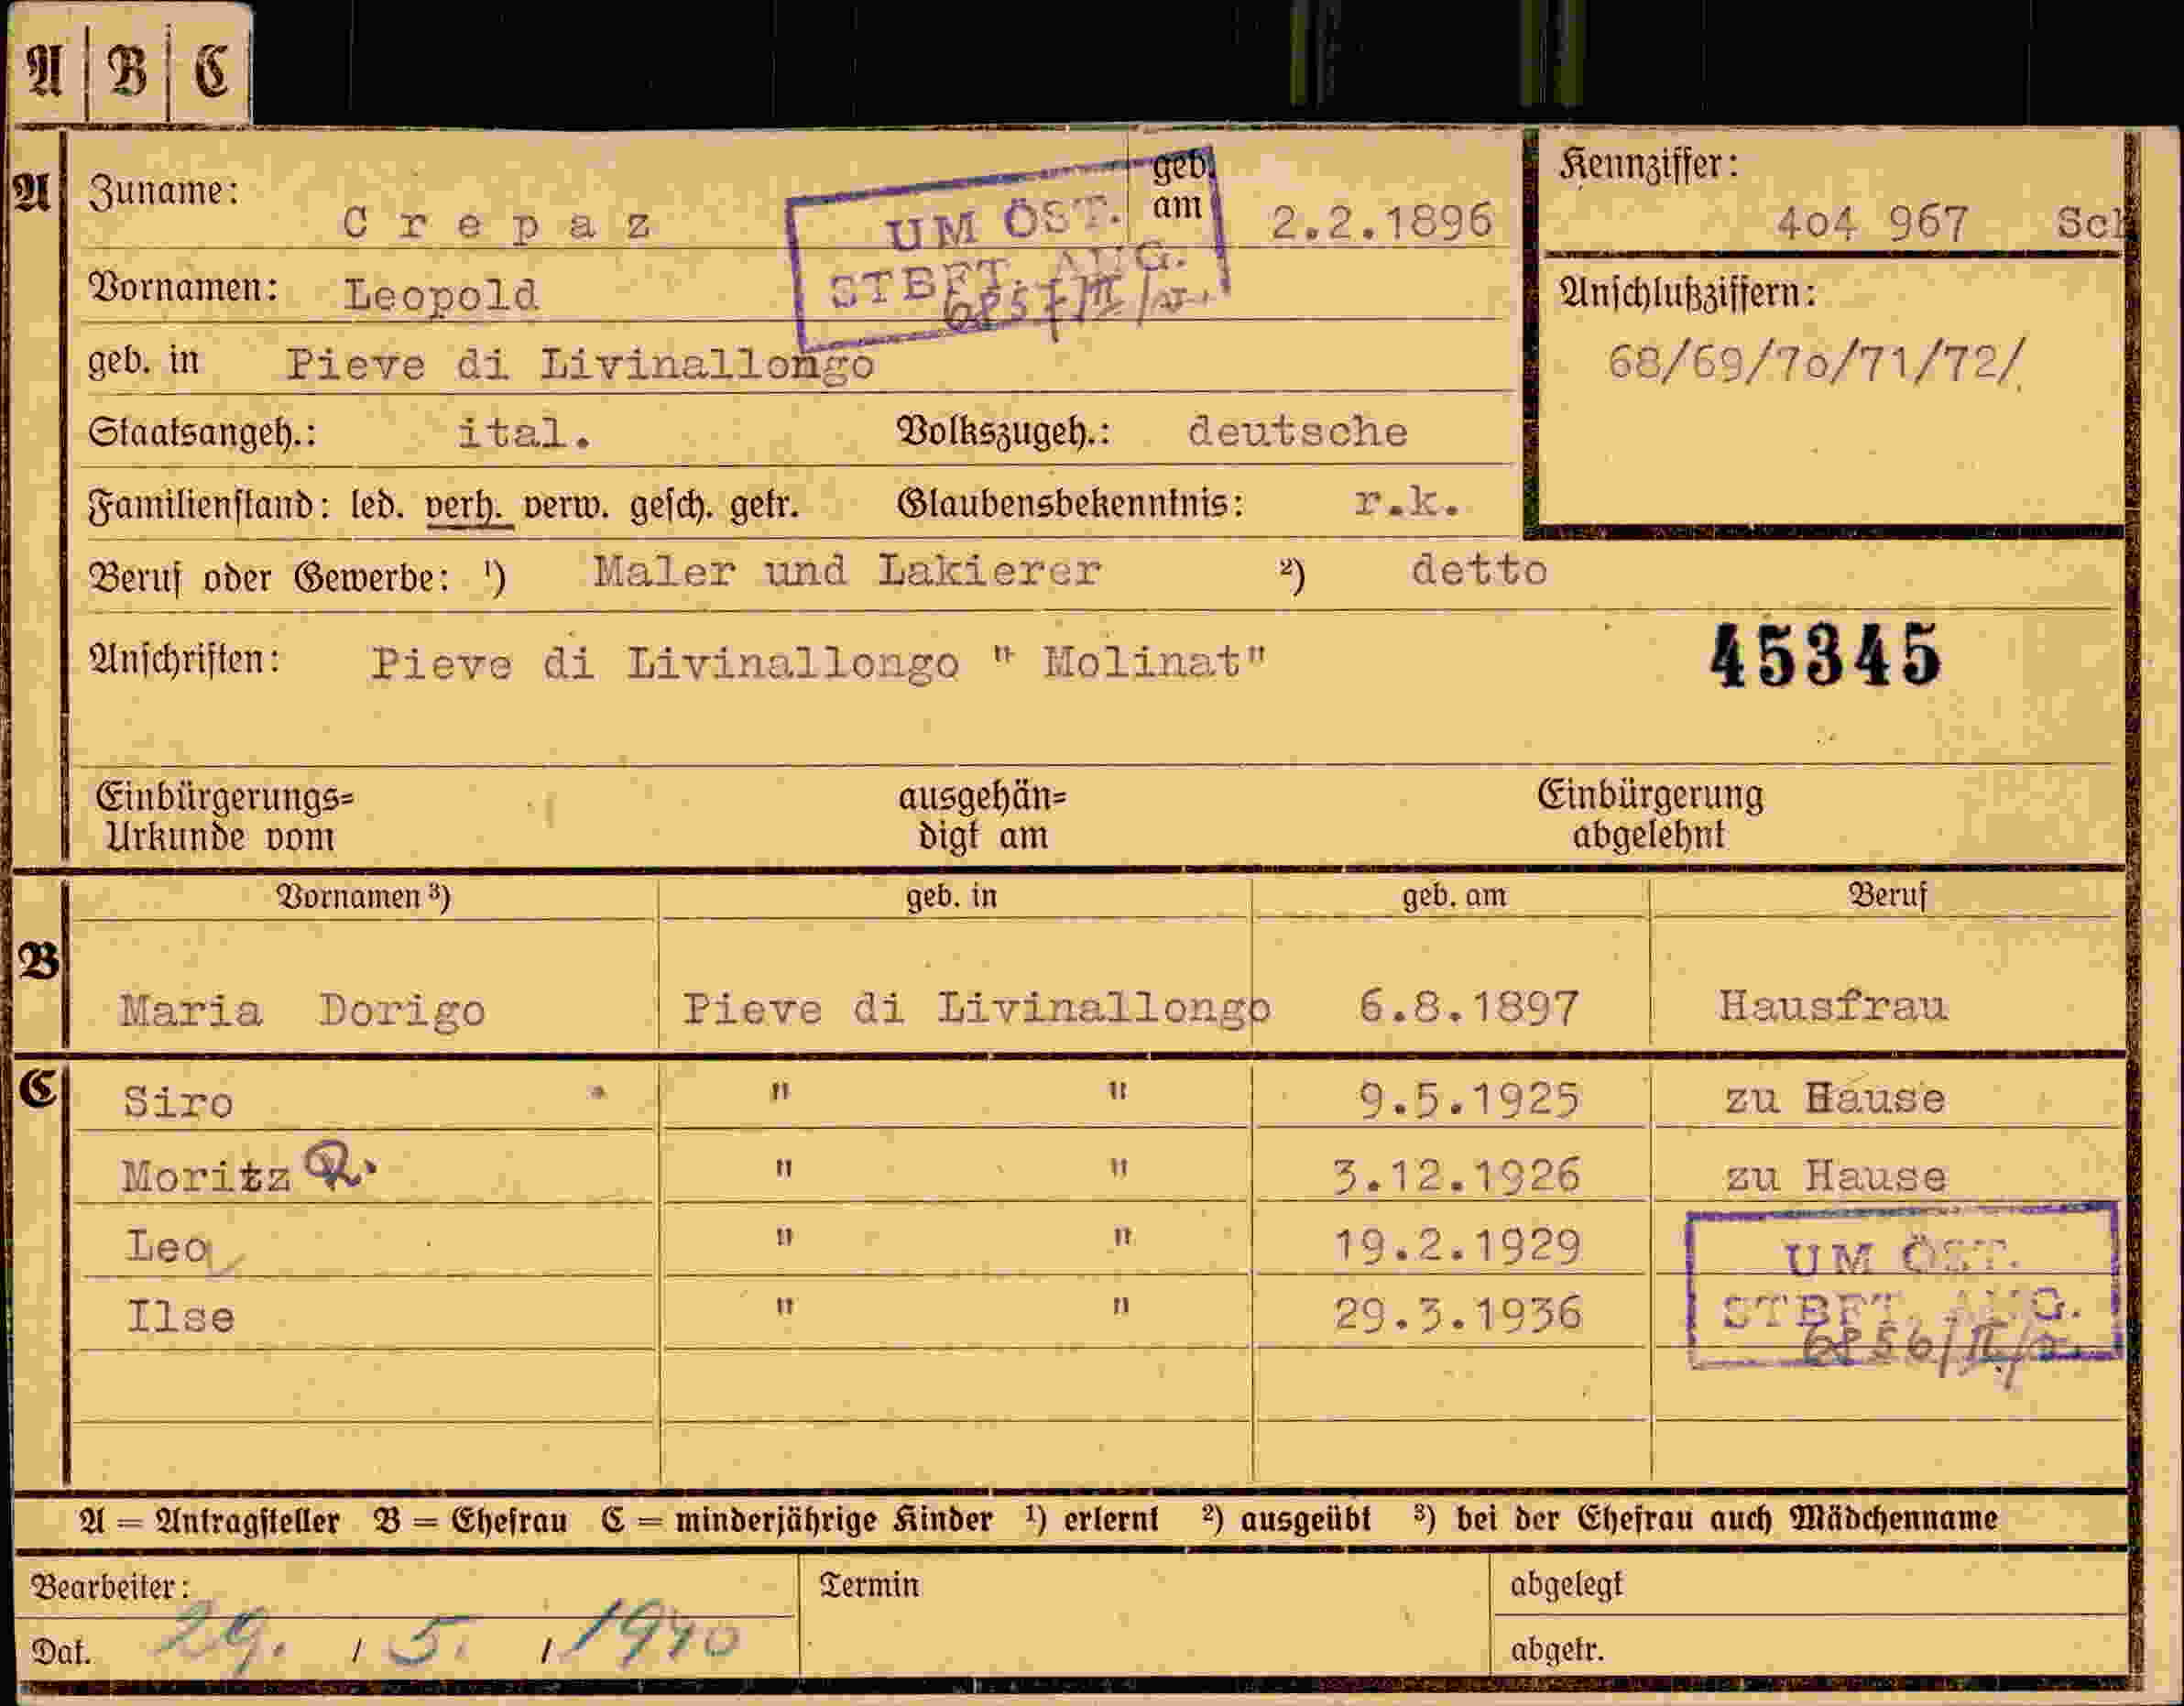 A | B | C
A Zuname: Crepaz geb. am 2.2.1896
UM ÖST.
STBFT. AUG.
Kennziffer:
404 967 Sch
Vornamen: Leopold
Anschlußziffern:
68/69/70/71/72/
geb. in Pieve di Livinallongo
Staatsangeh.: ital. Volkszugeh.: deutsche
Familienstand: led. verh. verw. gesch. getr. Glaubensbekenntnis: r.k.
Beruf oder Gewerbe: 1) Maler und Lakierer 2) detto
Anschriften: Pieve di Livinallongo " Molinat"
45345
Einbürgerungs= Urkunde vom ausgehän= digt am Einbürgerung abgelehnt
Vornamen 3) geb. in geb. am Beruf
B Maria Dorigo Pieve di Livinallongo 6.8.1897 Hausfrau
C Siro " " 9.5.1925 zu Hause
Moritz " " 3.12.1926 zu Hause
Leo " " 19.2.1929
Ilse " " 29.3.1936
UM ÖST.
STBFT. AUG.
A = Antragsteller B = Ehefrau C = minderjährige Kinder 1) erlernt 2) ausgeübt 3) bei der Ehefrau auch Mädchenname
Bearbeiter: Termin abgelegt
Dat. 29. / 5. / 1940 abgetr.